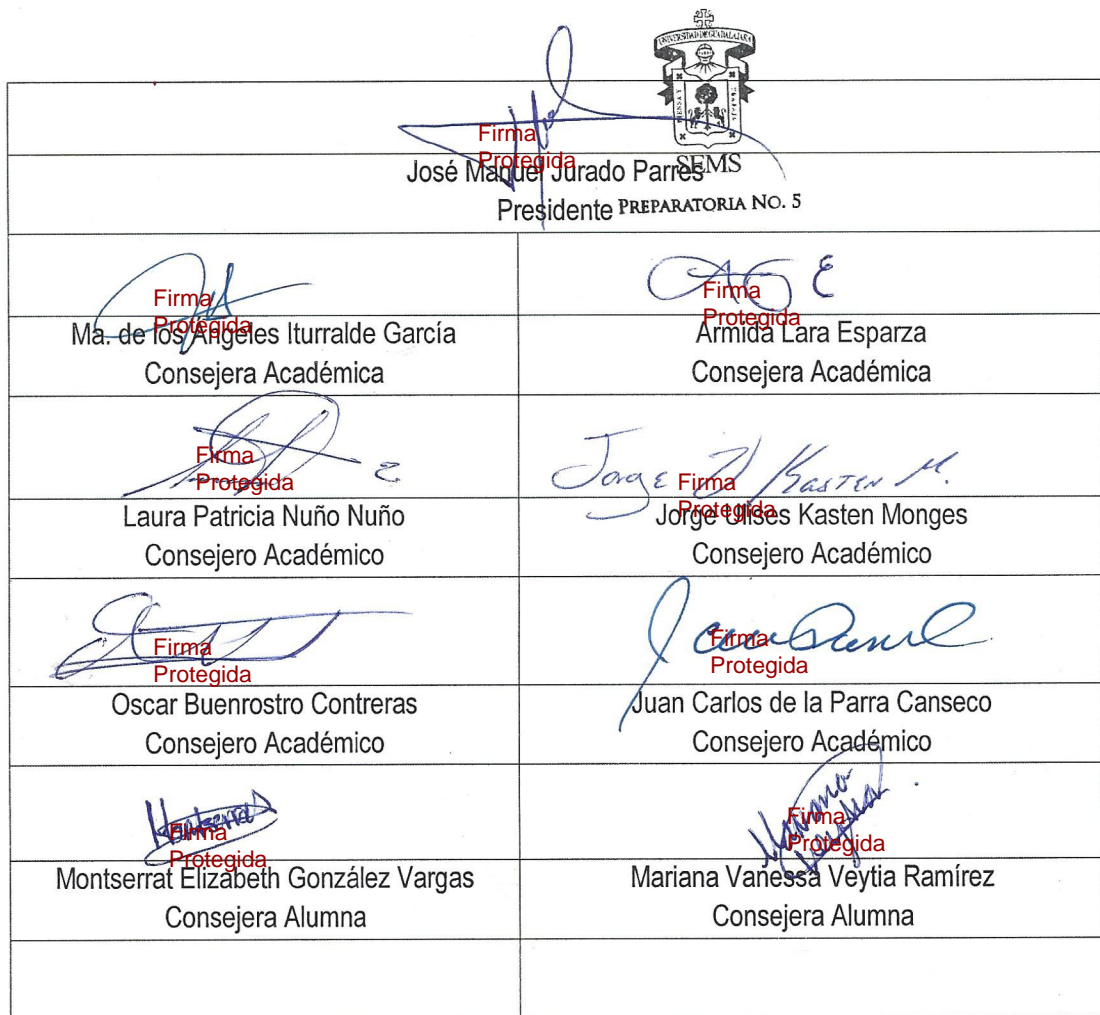 UNIVERSIDAD DE GUADALAJARA
PIENSA Y TRABAJA
SEMS
PREPARATORIA No. 5
Firma
Protegida
José Manuel Jurado Parres
Presidente
Firma
Protegida
Ma. de los Ángeles Iturralde García
Consejera Académica
Firma
Protegida
Armida Lara Esparza
Consejera Académica
Firma
Protegida
Laura Patricia Nuño Nuño
Consejero Académico
Jorge U Kasten M.
Firma
Protegida
Jorge Ulises Kasten Monges
Consejero Académico
Firma
Protegida
Oscar Buenrostro Contreras
Consejero Académico
Firma
Protegida
Juan Carlos de la Parra Canseco
Consejero Académico
Montserrat
Firma
Protegida
Montserrat Elizabeth González Vargas
Consejera Alumna
Mariana
Veytia
Firma
Protegida
Mariana Vanessa Veytia Ramírez
Consejera Alumna